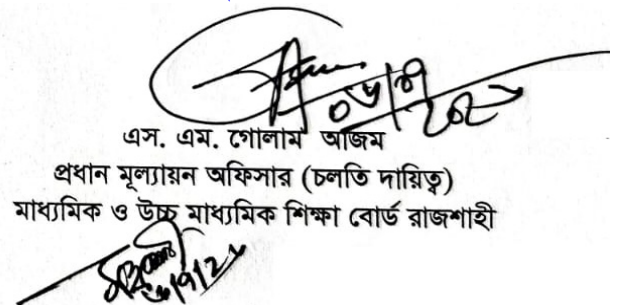 এস. এম. গোলাম আজম
প্রধান মূল্যায়ন অফিসার (চলতি দায়িত্ব)
মাধ্যমিক ও উচ্চ মাধ্যমিক শিক্ষা বোর্ড রাজশাহী